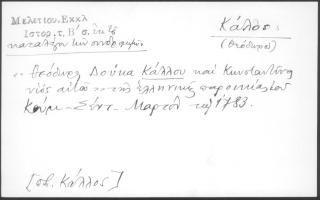 Μελετίου. Εκκλ
Ιστορ, τ, Β' σ, ἐν τῷ
καταλόγῳ τῶν συνδρομητῶν.
Κάλλος
(Θεόδωρος)
"Θεόδωρος Δούκα Κάλλου καὶ Κωνσταντῖνος
υἱὸς αὐτοῦ" τῆς ἑλληνικῆς παροικίας
Κούμ-Σέντ-Μαρτόλ τῷ 1783.
[πβ. Κάλλος]